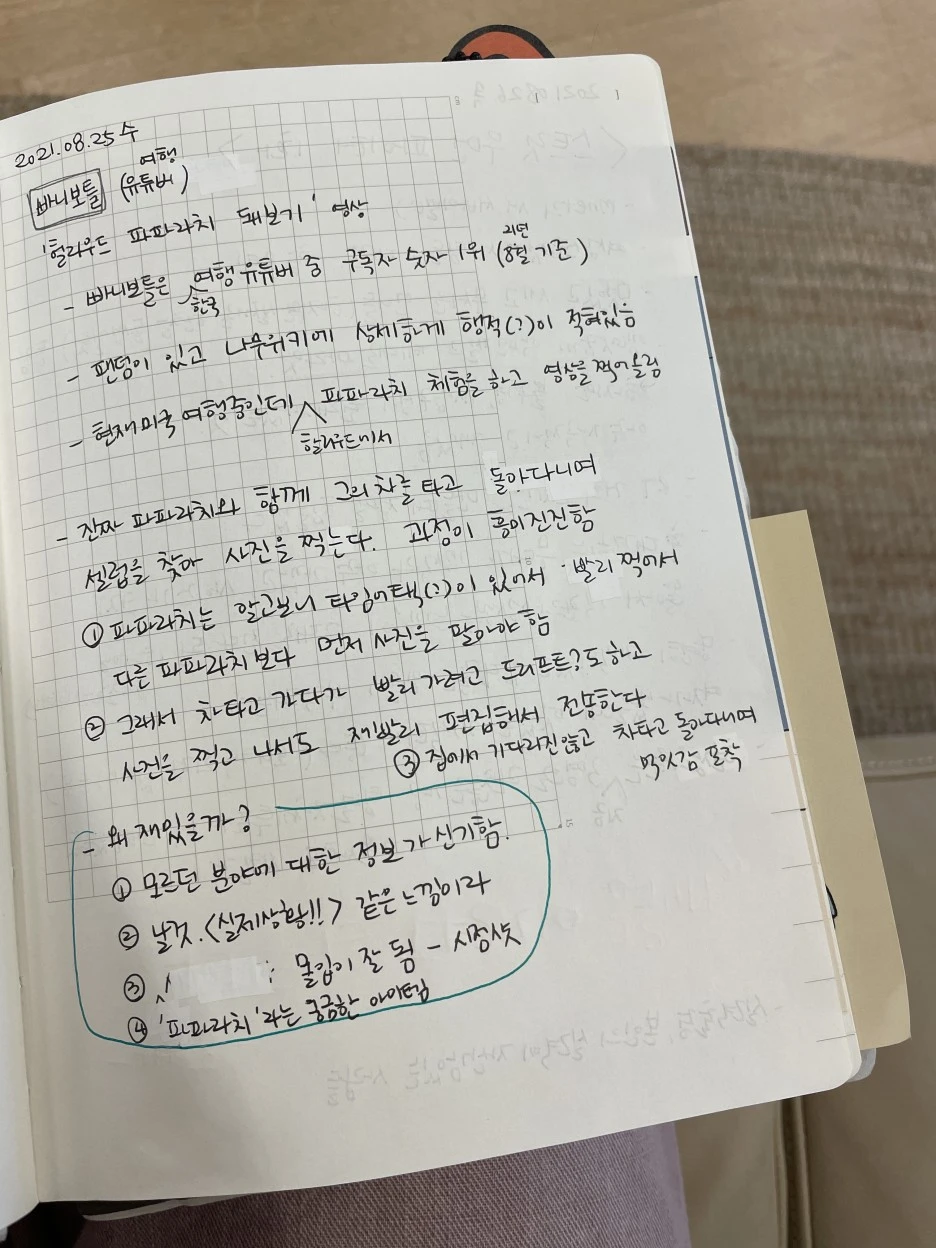 2021.08.25 수
빠니보틀 (유튜버) 여행
'헐리우드 파파라치 돼보기' 영상
- 빠니보틀은 한국 여행 유튜버 중 구독자 숫자 1위 (8월 기준)
- 팬덤이 있고 나무위키에 상세하게 행적(?)이 적혀있음
- 현재 미국 여행중인데 헐리우드에서 파파라치 체험을 하고 영상을 찍어올림
- 진짜 파파라치와 함께 그의 차를 타고 돌아다니며
셀럽을 찾아 사진을 찍는다. 과정이 흥미진진함
① 파파라치는 알고보니 타임어택(?)이 있어서 빨리 찍어서
다른 파파라치보다 먼저 사진을 팔아야 함
② 그래서 차타고 가다가 빨리 가려고 드리프트?도 하고
사진을 찍고 나서도 재빨리 편집해서 전송한다
③ 집에서 기다리진 않고 차타고 돌아다니며
먹잇감 포착
- 왜 재밌을까?
① 모르던 분야에 대한 정보가 신기함.
② 날것.<실제상황!!> 같은 느낌이라
③ : 몰입이 잘 됨 - 시점샷
④ '파파라치'라는 궁금한 아이템